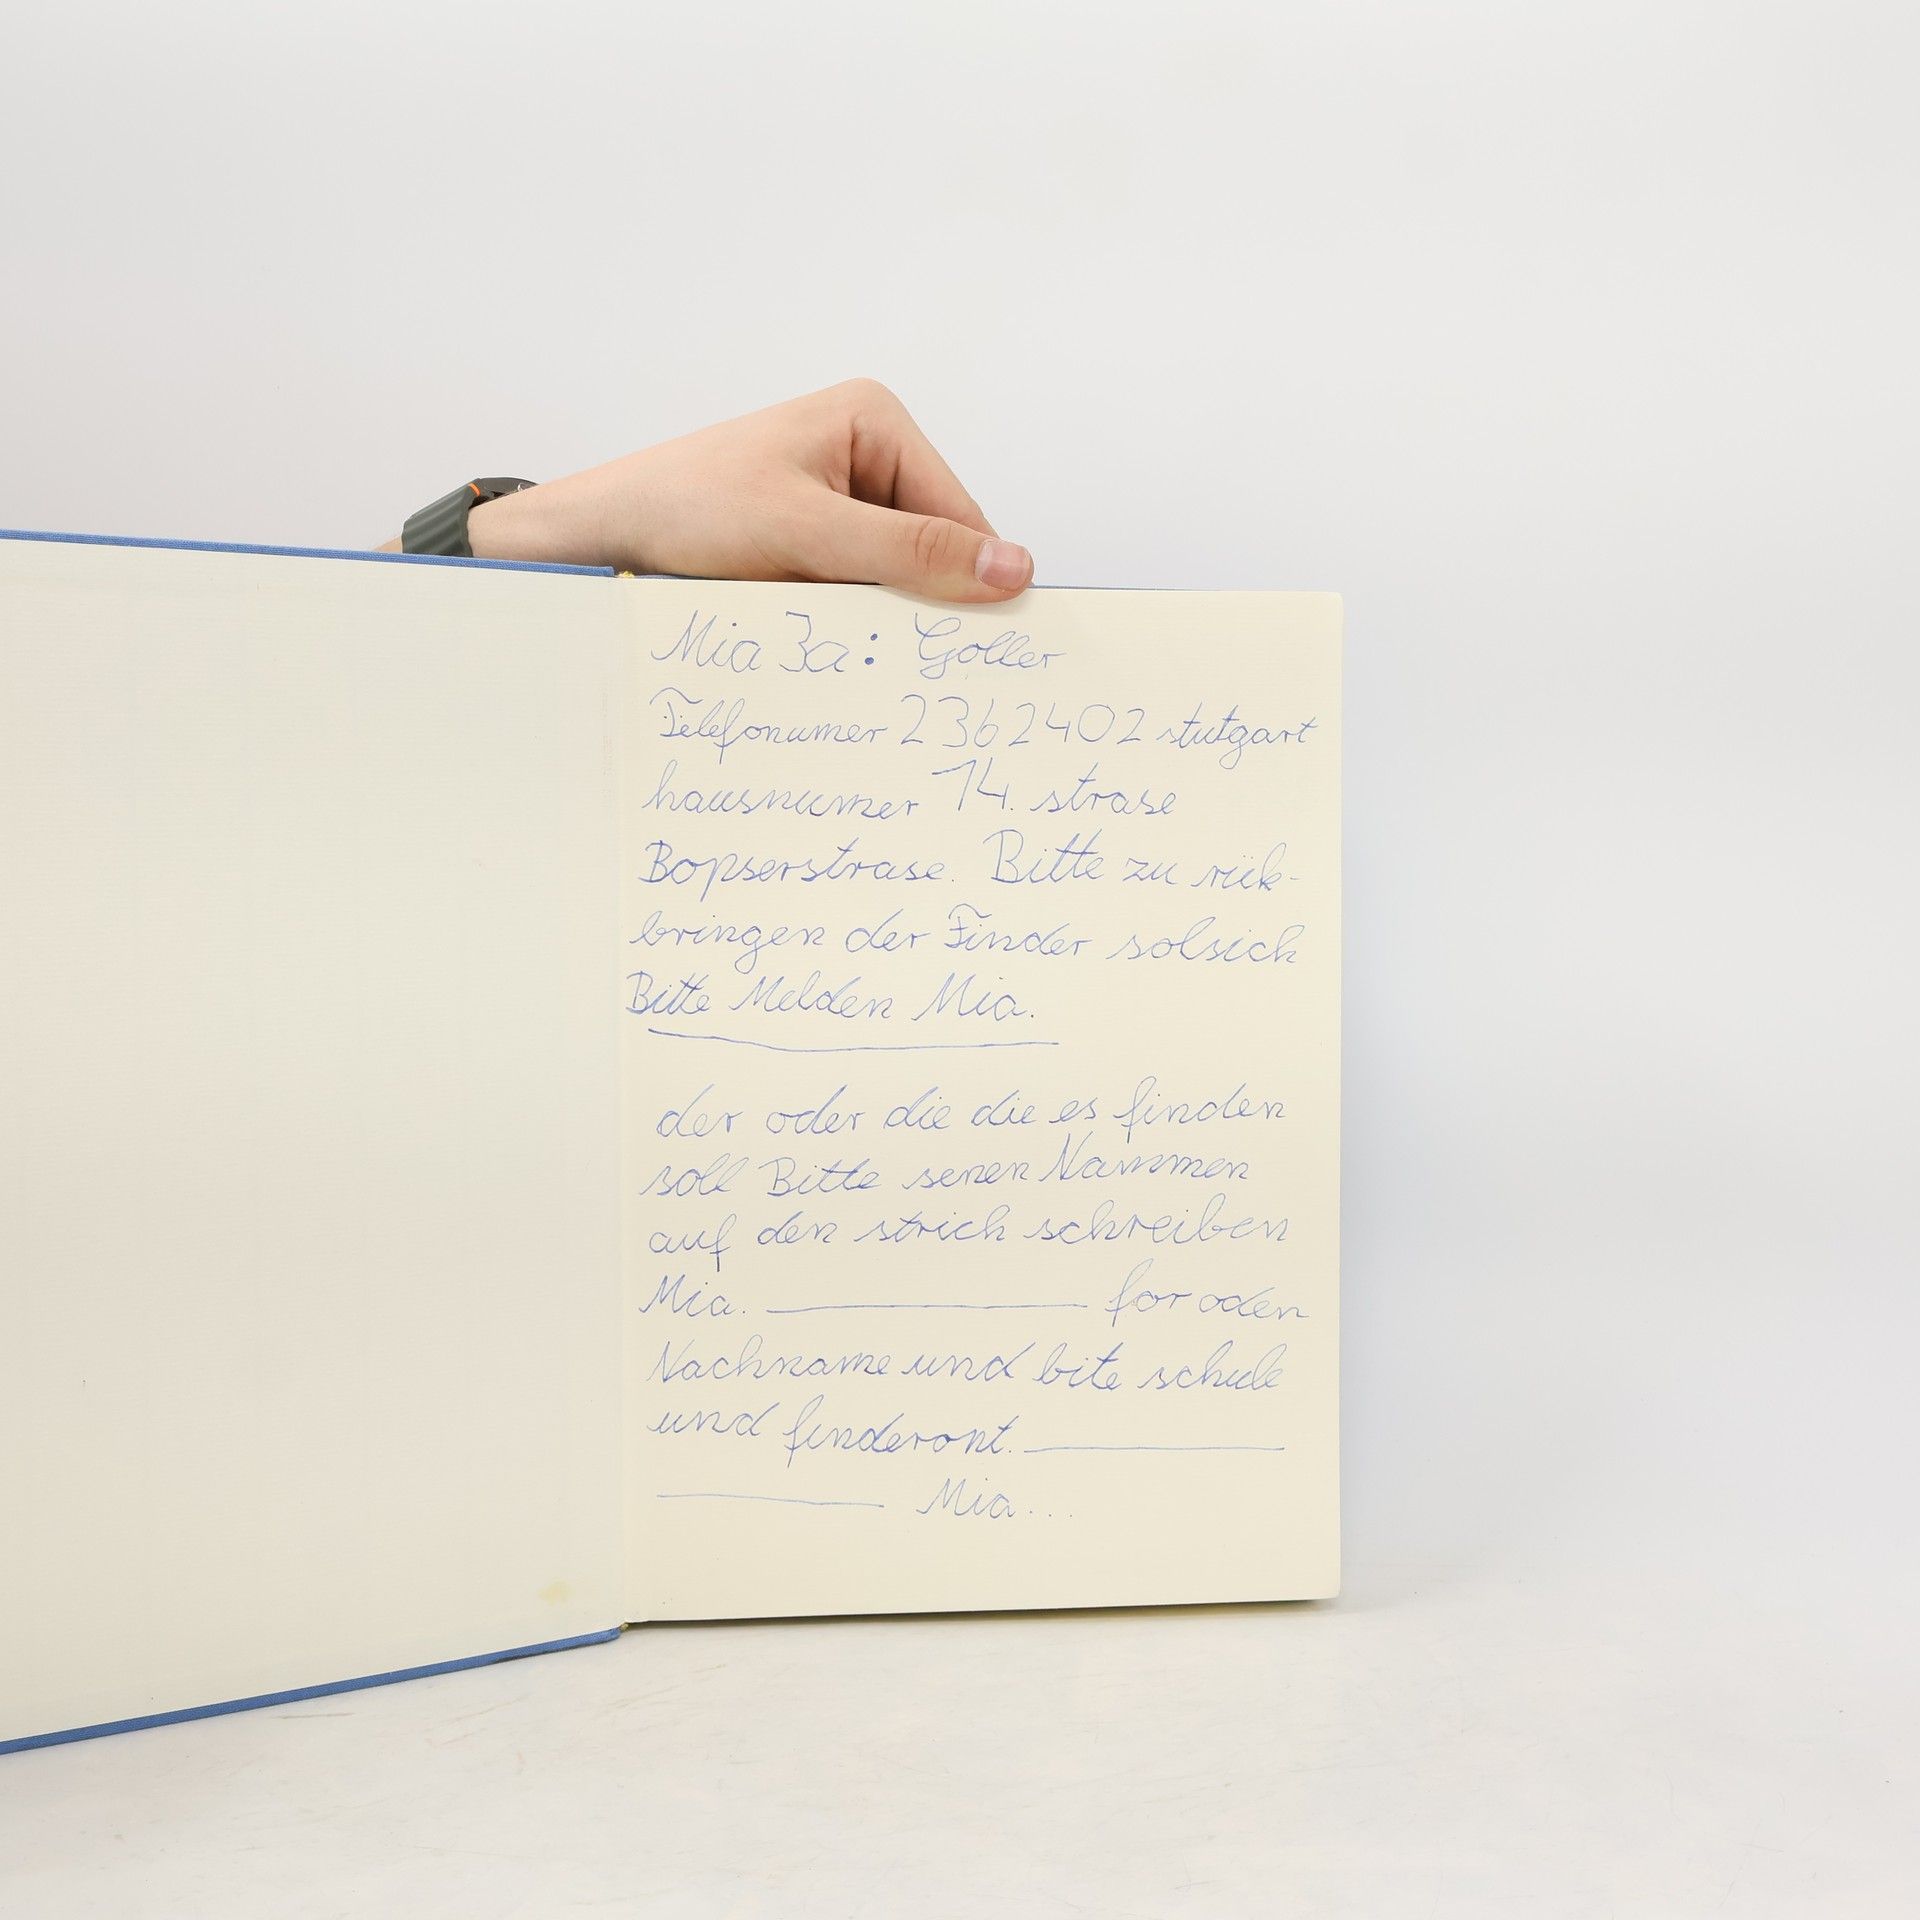 Mia 3a: Goller
Telefonumer 2362402 stutgart
hausnumer 14. strase
Bopserstrase. Bitte zu rük-
bringen der Finder solsich
Bitte Melden Mia.
der oder die die es finden
soll Bitte senen Nammen
auf den strich schreiben
Mia. for oden
Nachname und bite schule
und finderont.
Mia...